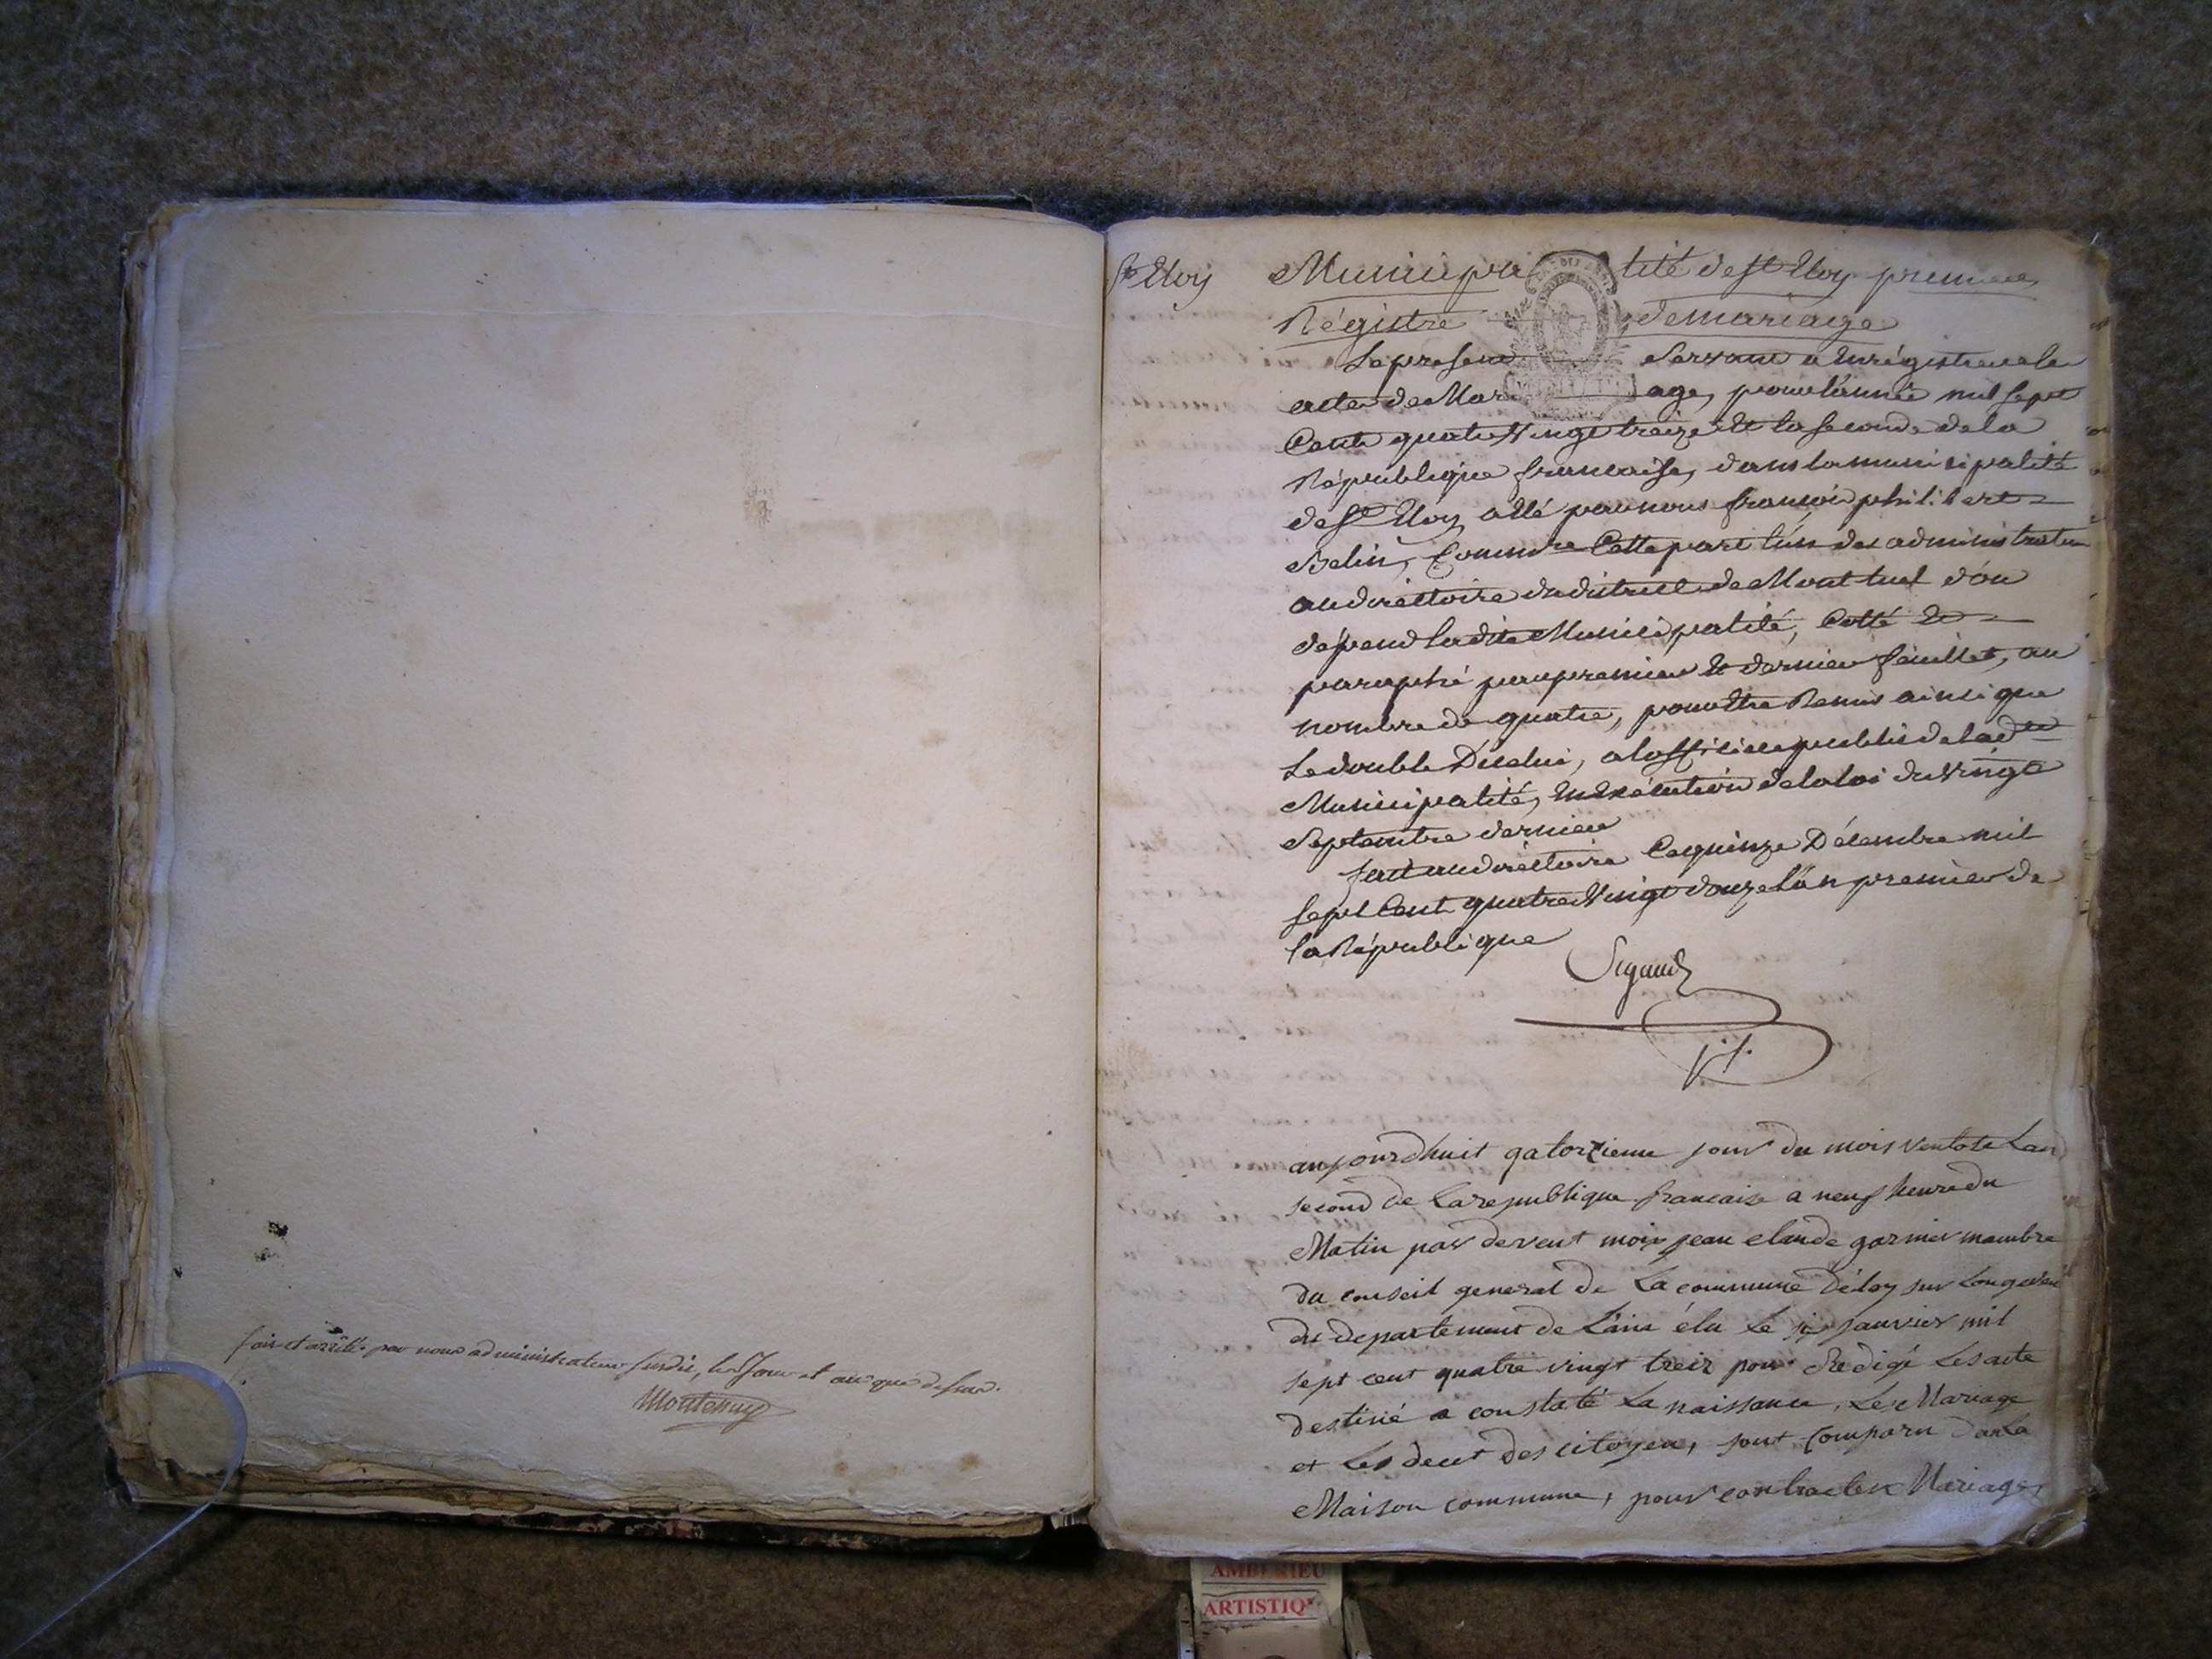 fait et arrêté par nous administrateur susdit, les Jour et an que dessus.
Montessuy
St Eloy
Municipalité de St Eloy premier
Régistre de mariage
Le present Servant a Enrégistrer le
actes de Mariage, pour l'année mil sept
Cents quatre Vingt treize Et la seconde de la
République francaise, dans la municipalité
de St Eloy, a été par nous françois philibert
Belin, Commre Cette part l'un des administrateurs
au diréctoire du district de Montluel d'ou
depend ladite Municipalité, Cotté Et
paraphé par premier Et dernier feuillet, au
nombre de quatre, pour Etre Remis ainsi que
Le double D'icelui, a lofficier public de lade
Municipalité, En Exécution de la loi du Vingt
Septembre dernier
fait au diréctoire Ce quinze Décembre mil
Sept Cent quatre Vingt douze L'an premier de
la République
Sigaud
aujourdhuit qatorzieme jour du mois ventose Lan
second de La republique francaise a neuf heure du
Matin par devent moix jean claude garnier mambre
du conseil general de La commune Déloy sur
du departement de L'ain élu Le janvier mil
sept cent quatre vingt treiz pour Redigé Les acte
destiné a constaté La naissance, Les Mariage
et Les decet des citoyen, sont Comparu dan La
Maison commune, pour contracter Mariage,
AMBERIEU
ARTISTIQ